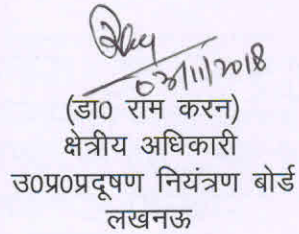 03/11/2018
(डा0 राम करन)
क्षेत्रीय अधिकारी
उ0प्र0प्रदूषण नियंत्रण बोर्ड
लखनऊ